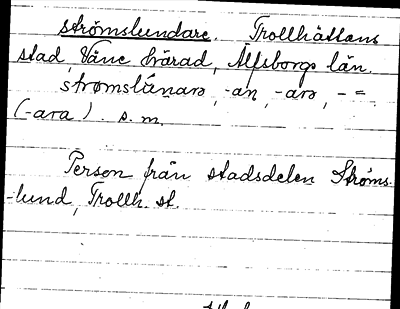 strömslundare. Trollhättans
stad, Väne härad, Älfsborgs län.
strømslúnarə, -an, -arə, - =
(-ara). s. m.
Person från stadsdelen Ströms-
-lund, Trollh. st.